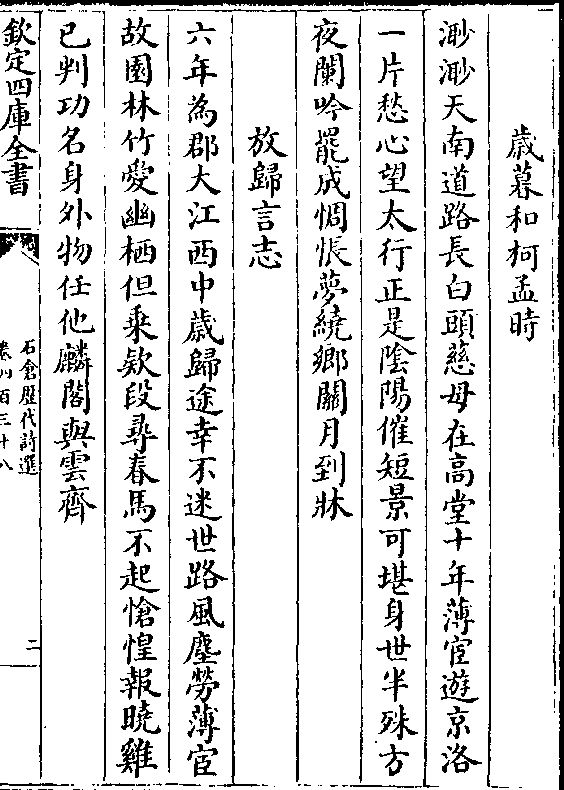 歳暮和柯孟時
渺渺天南道路長白頭慈母在高堂十年薄宦遊京洛
一片愁心望太行正是隂陽催短景可堪身世半殊方
夜闌吟罷成惆悵夢繞鄉關月到牀
放歸言志
六年為郡大江西中歳歸途幸不迷世路風塵勞薄宦
故園林竹愛幽栖但乗欵段尋春馬不起愴惶報曉雞
已判功名身外物任他麟閣與雲齊
欽定四庫全書
石倉歴代詩選
卷四百三十八
二